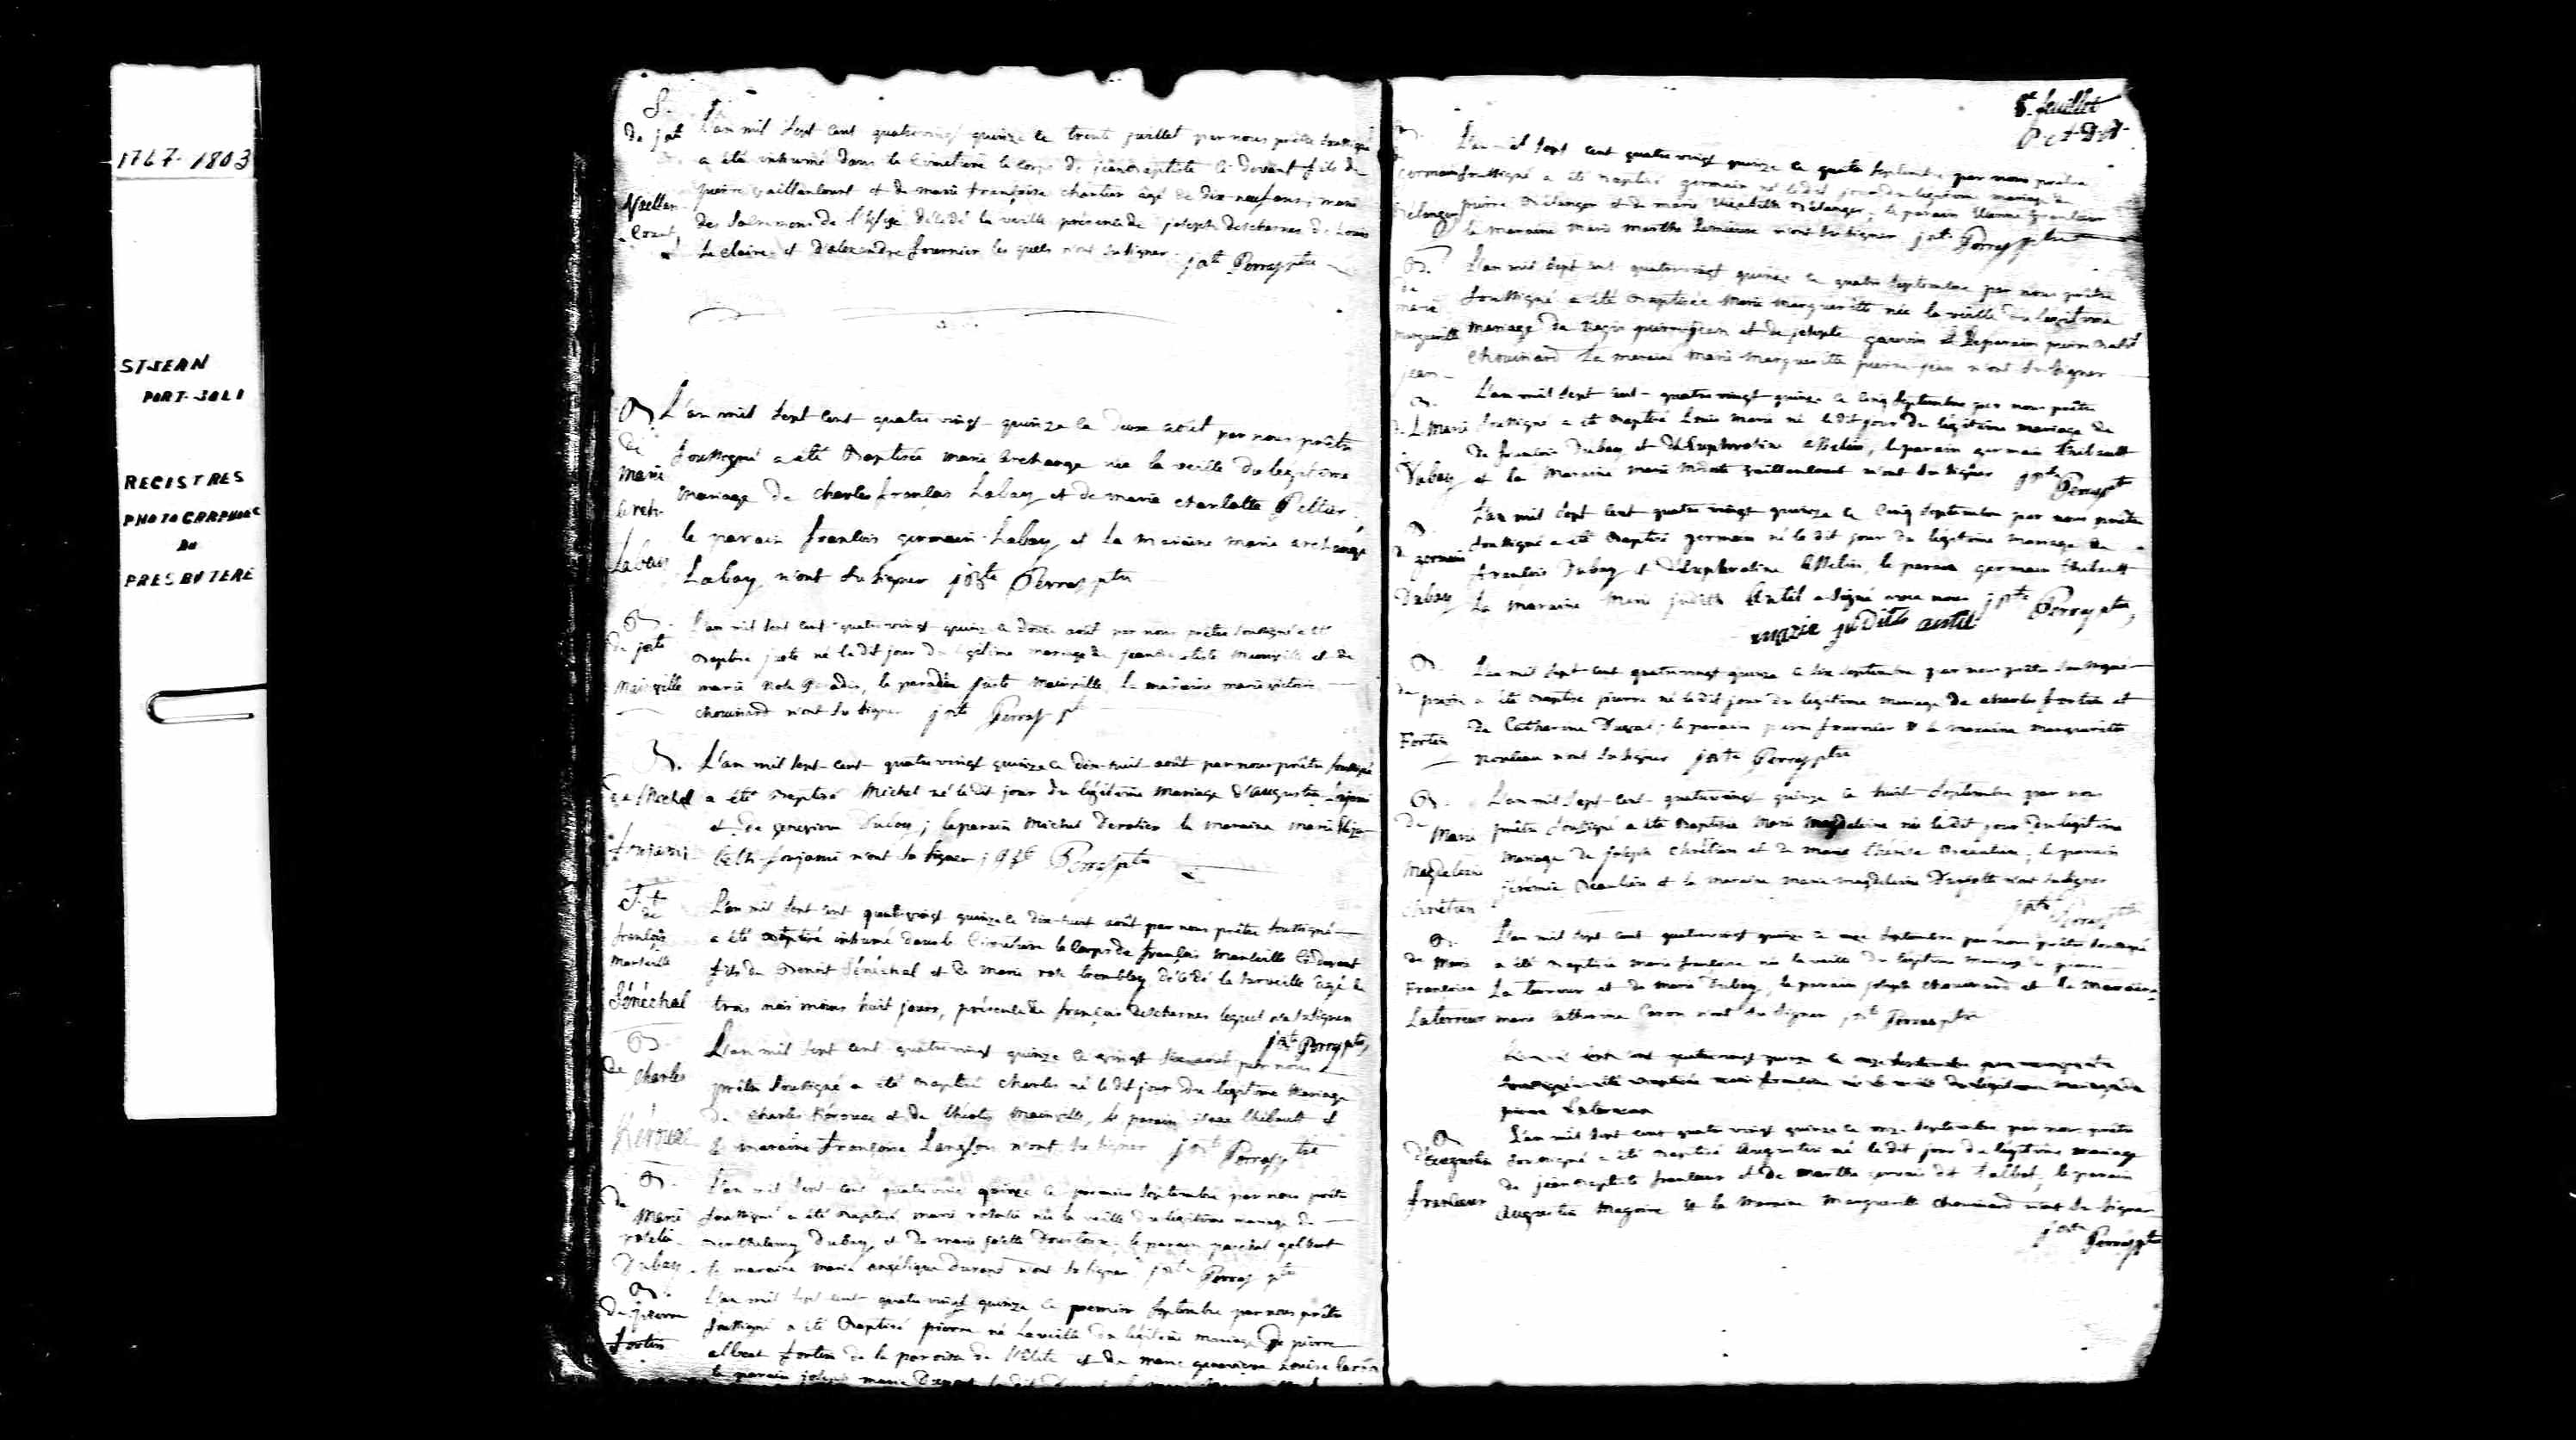 1767-1803
ST-JEAN
PORT-JOLI
REGISTRES
PHOTOGRAPHIÉS
AU
PRESBYTERE
S.
de jbte
Vaillancourt
L'an mil sept cent quatrevingt quinze le trente juillet par nous prêtre soussigné
a été inhumé dans le Cimetiere le corps de jean baptiste ci devant fils de
pierre vaillancourt et de marie françoise chartier âgé de dix-neuf ans, muni
des sacremens de l'Eglise décédé la veille présence de joseph deschenes de Louis
Le claire et d'alexandre fournier les quels n'ont su signer jbte Perras ptre
B
de
Marie
Arch.
Labay
L'an mil sept cent quatre vingt quinze le deux août par nous prêtre
soussigné a été baptisée marie archange née la veille du legitime
mariage de charles françois Labay et de marie charlotte Pellier,
le parain françois germain Labay et la maraine marie archange
Labay n'ont su signer jbte Perras ptre
B.
de jbte
Mainville
L'an mil sept cent quatrevingt quinze le douze août par nous prêtre soussigné a été
baptisé jbste né le dit jour du légitime mariage de jean baptiste Mainville et de
marie rose Paradis, le parain jbste Mainville la maraine marie victoire
chouinard n'ont su signer jbte Perras pt
B.
de Michel
L'an mil sept cent quatre vingt quinze le dix-huit août par nous prêtre soussigné
a été baptisé Michel né le dit jour du légitime mariage d'augustin
et de genevieve Dubay; le parain Michel la maraine marie Eliza-
beth n'ont su signer jbte Perras ptre
S.
de
françois
Marseille
Sénéchal
L'an mil sept cent quatrevingt quinze le dix-huit août par nous prêtre soussigné
a été baptisé inhumé dans le Cimetiere le corps de françois Marseille ci devant
fils de Benoit Sénéchal et de Marie rose tremblay décédé la surveille âgé de
trois mois moins huit jours, présence de françois deschenes lequel n'a su signer
jbte Perras ptre
B.
de Charles
Kérouac
L'an mil sept cent quatre vingt quinze le vingt six aout par nous
prêtre soussigné a été baptisé charles né le dit jour du legitime mariage
de charles Kérouac et de Mainville, le parain thibault et
la maraine françoise Langlois n'ont su signer jbte Perras ptre
B.
de
Marie
rosalie
Dubay
L'an mil sept cent quatre vingt quinze le premier septembre par nous prêtre
soussigné a été baptisé marie rosalie née la veille du légitime mariage de
Barthelemy Dubay et de marie le parain paschal
la maraine marie angélique Durand n'ont su signer jbte Perras ptre
B.
de pierre
fortin
L'an mil sept cent quatre vingt quinze le premier septembre par nous prêtre
soussigné a été baptisé pierre né la veille du légitime mariage de pierre
albert fortin de la paroisse de l'islete et de marie genevieve Louise Caron
le parain joseph marie
8e feuillet
B.
Germain
Bélanger
L'an mil sept cent quatre vingt quinze le quatre septembre par nous prêtre
soussigné a été baptisé germain né le dit jour du legitime mariage de
pierre Bélanger et de marie Elizabeth Bélanger, le parain
la maraine marie marthe Lemieux n'ont su signer jbte Perras ptre
B.
de
marie
marguerite
jean
L'an mil sept cent quatrevingt quinze le quatre septembre par nous prêtre
soussigné a été baptisée Marie marguerite née la veille du legitime
mariage de Regis pierre jean et de josephte gauvin le parain pierre
chouinard la maraine marie marguerite pierre-jean n'ont su signer
B.
de L. Marie
Dubay
L'an mil sept cent quatre vingt quinze le cinq septembre par nous prêtre
soussigné a été baptisé Louis marie né le dit jour du légitime mariage de
de francois Dubay et d'Euphrosine asselin, le parain germain thibault
et la maraine marie vaillancourt n'ont su signer jbte Perras pt
B.
de germain
Dubay
L'an mil sept cent quatre vingt quinze le cinq septembre par nous prêtre
soussigné a été baptisé germain né le dit jour du légitime mariage de
françois Dubay et d'Euphrosine asselin, le parain germain thibault
La maraine Marie judith Antil a signé avec nous jbte Perras ptre
marie judith antil
B.
de
pierre
Fortin
L'an mil sept cent quatrevingt quinze le six septembre par nous prêtre soussigné
a été baptisé pierre né le dit jour du legitime mariage de charles fortin et
de Catherine Duval; le parain pierre fournier & la maraine marguerite
n'ont su signer jbte Perras ptre
B.
de
Marie
Magdeleine
chrétien
L'an mil sept cent quatrevingt quinze le huit septembre par nous
prêtre soussigné a été baptisée Marie Magdeleine née le dit jour du legitime
mariage de joseph chrétien et de marie thérèse Beaulieu; le parain
jérémie Beaulieu et la maraine marie magdeleine n'ont su signer
jbte Perras ptre
B.
de Marie
Françoise
Laterreur
L'an mil sept cent quatrevingt quinze le onze septembre par nous prêtre soussigné
a été baptisée marie francoise née la veille du légitime mariage de pierre
La terreur et de Marie Dubay, le parain joseph chouinard et la maraine
marie Catherine Caron n'ont su signer jbte Perras ptre
L'an mil sept cent quatrevingt quinze le onze septembre par nous prêtre
soussigné a été baptisée marie francoise née la veille du légitime mariage de
pierre Laterreur
B
d'augustin
francoeur
L'an mil sept cent quatre vingt quinze le onze septembre par nous prêtre
soussigné a été baptisé Augustin né le dit jour du légitime mariage
de jean baptiste francoeur et de marthe gervais dit talbot; le parain
Augustin & la maraine Marguerite chouinard n'ont su signer
jbte Perras ptre